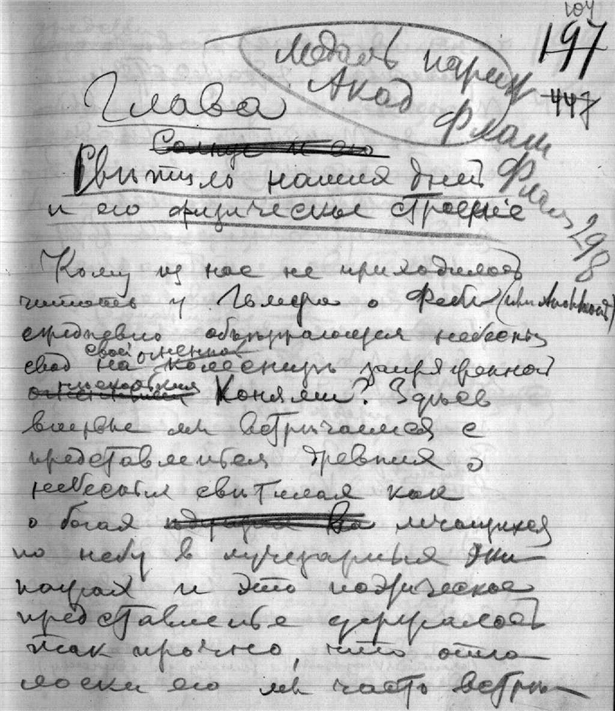 104
197
447
Медаль париж
Акад
Флам
Флам 298
Глава
Солнце и его
Светило наших дней
и его физическое строение
Кому из нас не приходилось
читать у Гомера о Фебе (или Аполлоне)
ежедневно объезжающем небесный
свод на своей огненной колеснице запряженной
конями? Здесь
впервые мы встречаемся с
представлением древних о
небесных светилах как
о богах мчащихся
по небу в лучезарных эки
пажах и это поэтическое
представление удержалось
так прочно, что отго
лоски его мы часто встре